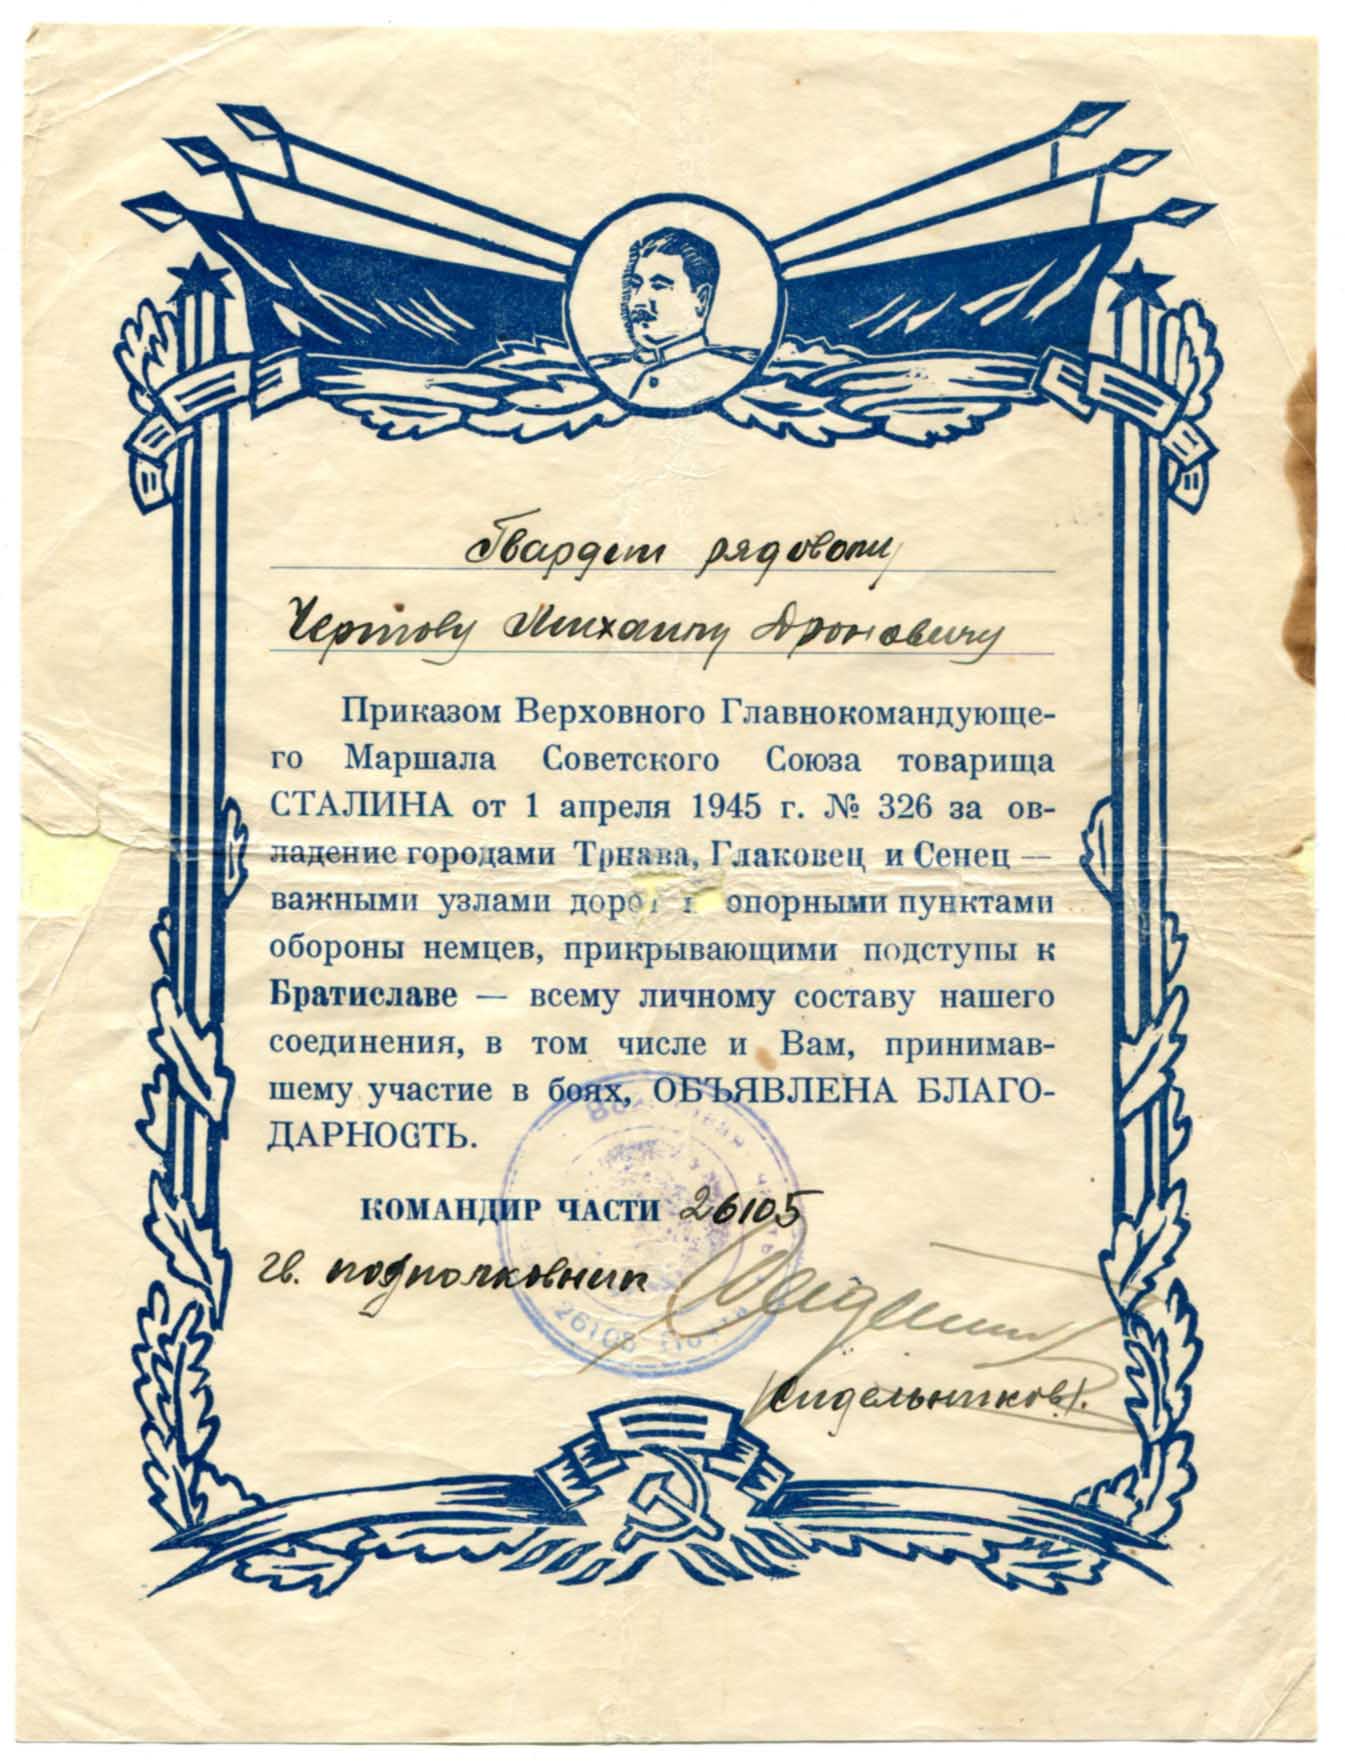 Гвардии рядовому
Чертову Михаилу Дроновичу
Приказом Верховного Главнокомандующе-
го Маршала Советского Союза товарища
СТАЛИНА от 1 апреля 1945 г. № 326 за ов-
ладение городами Трнава, Глаковец и Сенец —
важными узлами дорог и опорными пунктами
обороны немцев, прикрывающими подступы к
Братиславе — всему личному составу нашего
соединения, в том числе и Вам, принимав-
шему участие в боях, ОБЪЯВЛЕНА БЛАГО-
ДАРНОСТЬ.
КОМАНДИР ЧАСТИ 26105
гв. подполковник
Сидельников
26105